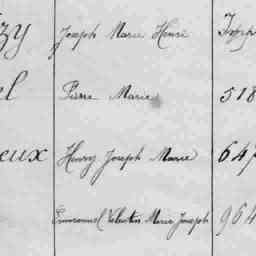 zy Joseph Marie Henri
el Pierre Marie 518
eux Henry Joseph Marie 647
Emmanuel Valentin Marie Joseph 964